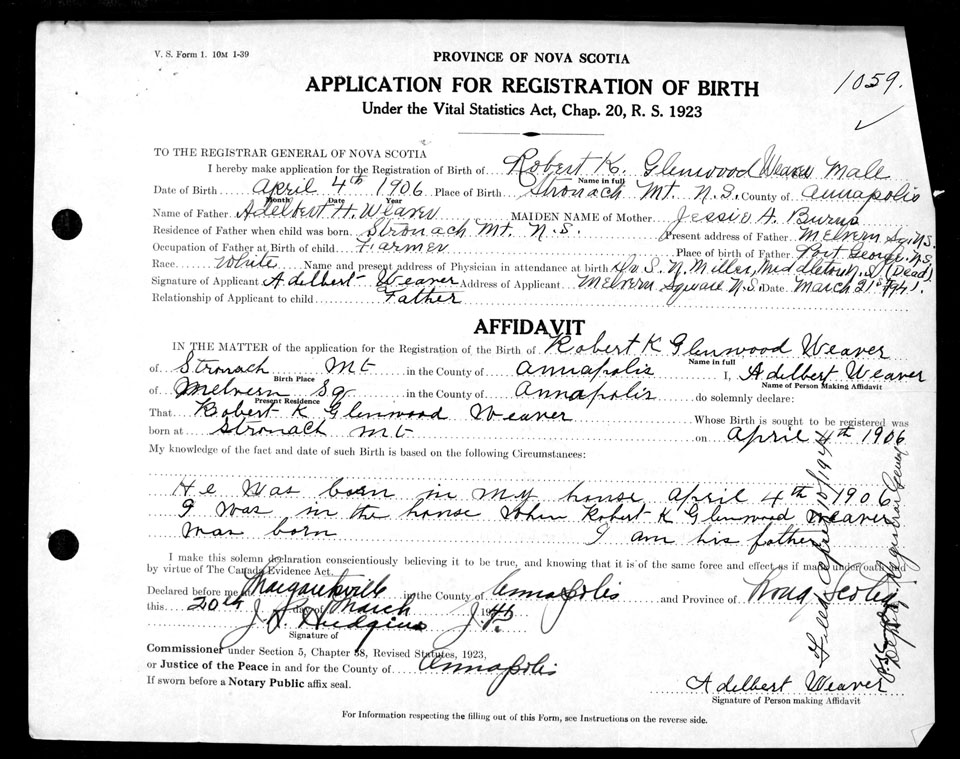 V. S. Form 1. 10M 1-39
PROVINCE OF NOVA SCOTIA
APPLICATION FOR REGISTRATION OF BIRTH
1059.
Under the Vital Statistics Act, Chap. 20, R. S. 1923
TO THE REGISTRAR GENERAL OF NOVA SCOTIA
I hereby make application for the Registration of Birth of Robert K. Glenwood Weaver Male
Name in full
Date of Birth April 4th 1906 Place of Birth Stronach Mt. N.S. County of Annapolis
Month Date Year
Name of Father Adelbert H. Weaver MAIDEN NAME of Mother Jessie A. Burns
Residence of Father when child was born. Stronach Mt. N.S. Present address of Father Melvern Sq. N.S.
Occupation of Father at Birth of child Farmer Place of birth of Father Port George. N.S.
Race White Name and present address of Physician in attendance at birth Dr S. N. Miller, Middleton N.S. (Dead)
Signature of Applicant Adelbert Weaver Address of Applicant Melvern Square N.S. Date March 21st 1941.
Relationship of Applicant to child Father
AFFIDAVIT
IN THE MATTER of the application for the Registration of the Birth of Robert K Glenwood Weaver
Name in full
of Stronach Mt in the County of Annapolis I, Adelbert Weaver
Birth Place Name of Person Making Affidavit
of Melvern Sq in the County of Annapolis do solemnly declare:
Present Residence
That Robert K Glenwood Weaver Whose Birth is sought to be registered was
born at Stronach Mt on April 4th 1906
My knowledge of the fact and date of such Birth is based on the following Circumstances:
He was born in my house April 4th 1906
I was in the house when Robert K Glenwood Weaver
was born I am his father
I make this solemn declaration conscientiously believing it to be true, and knowing that it is of the same force and effect as if made under oath and
by virtue of The Canada Evidence Act.
Declared before me at Margaretsville in the County of Annapolis and Province of Nova Scotia
this 20th day of March 194
J. L. Hudgins J.P.
Signature of
Commissioner under Section 5, Chapter 38, Revised Statutes, 1923,
or Justice of the Peace in and for the County of Annapolis
If sworn before a Notary Public affix seal.
Adelbert Weaver
Signature of Person making Affidavit
For Information respecting the filling out of this Form, see Instructions on the reverse side.
Filed April 10/194
Deputy Registrar General